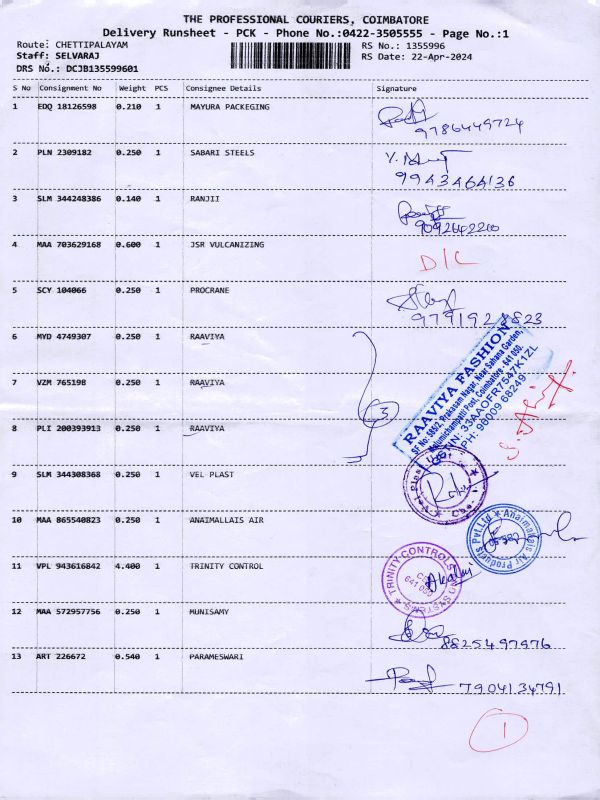 THE PROFESSIONAL COURIERS, COIMBATORE
Delivery Runsheet - PCK - Phone No.:0422-3505555 - Page No.:1
Route: CHETTIPALAYAM RS No.: 1355996
Staff: SELVARAJ RS Date: 22-Apr-2024
DRS No.: DCJB135599601
S No Consignment No Weight PCS Consignee Details Signature
1 EDQ 18126598 0.210 1 MAYURA PACKEGING
9786449724
2 PLN 2309182 0.250 1 SABARI STEELS
9943464136
3 SLM 344248386 0.140 1 RANJII
9092642200
4 MAA 703629168 0.600 1 JSR VULCANIZING D/C
5 SCY 104066 0.250 1 PROCRANE
6 MYD 4749307 0.250 1 RAAVIYA
7 VZM 765198 0.250 1 RAAVIYA
3
RAAVIYA FASHION
SF No: 585/2, Prakasam Nagar, Near Sahana Garden,
Malumichampatti Post, Coimbatore - 641 050.
33AAOFR7547K1ZL
PH: 96009 68249
8 PLI 200393913 0.250 1 RAAVIYA
9 SLM 344308368 0.250 1 VEL PLAST
10 MAA 865540823 0.250 1 ANAIMALLAIS AIR
Anaimalais Air Products Pvt.Ltd
11 VPL 943616842 4.400 1 TRINITY CONTROL
TRINITY CONTROLS AND SYSTEMS
12 MAA 572957756 0.250 1 MUNISAMY
8825497976
13 ART 226672 0.540 1 PARAMESWARI
7904134791
1